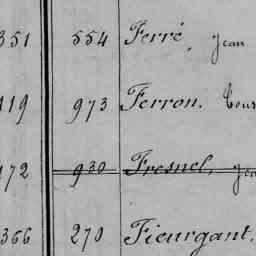 351 554 Ferré, Jean
119 973 Ferron.
172 930 Fresnel,
366 270 Fieurgant.